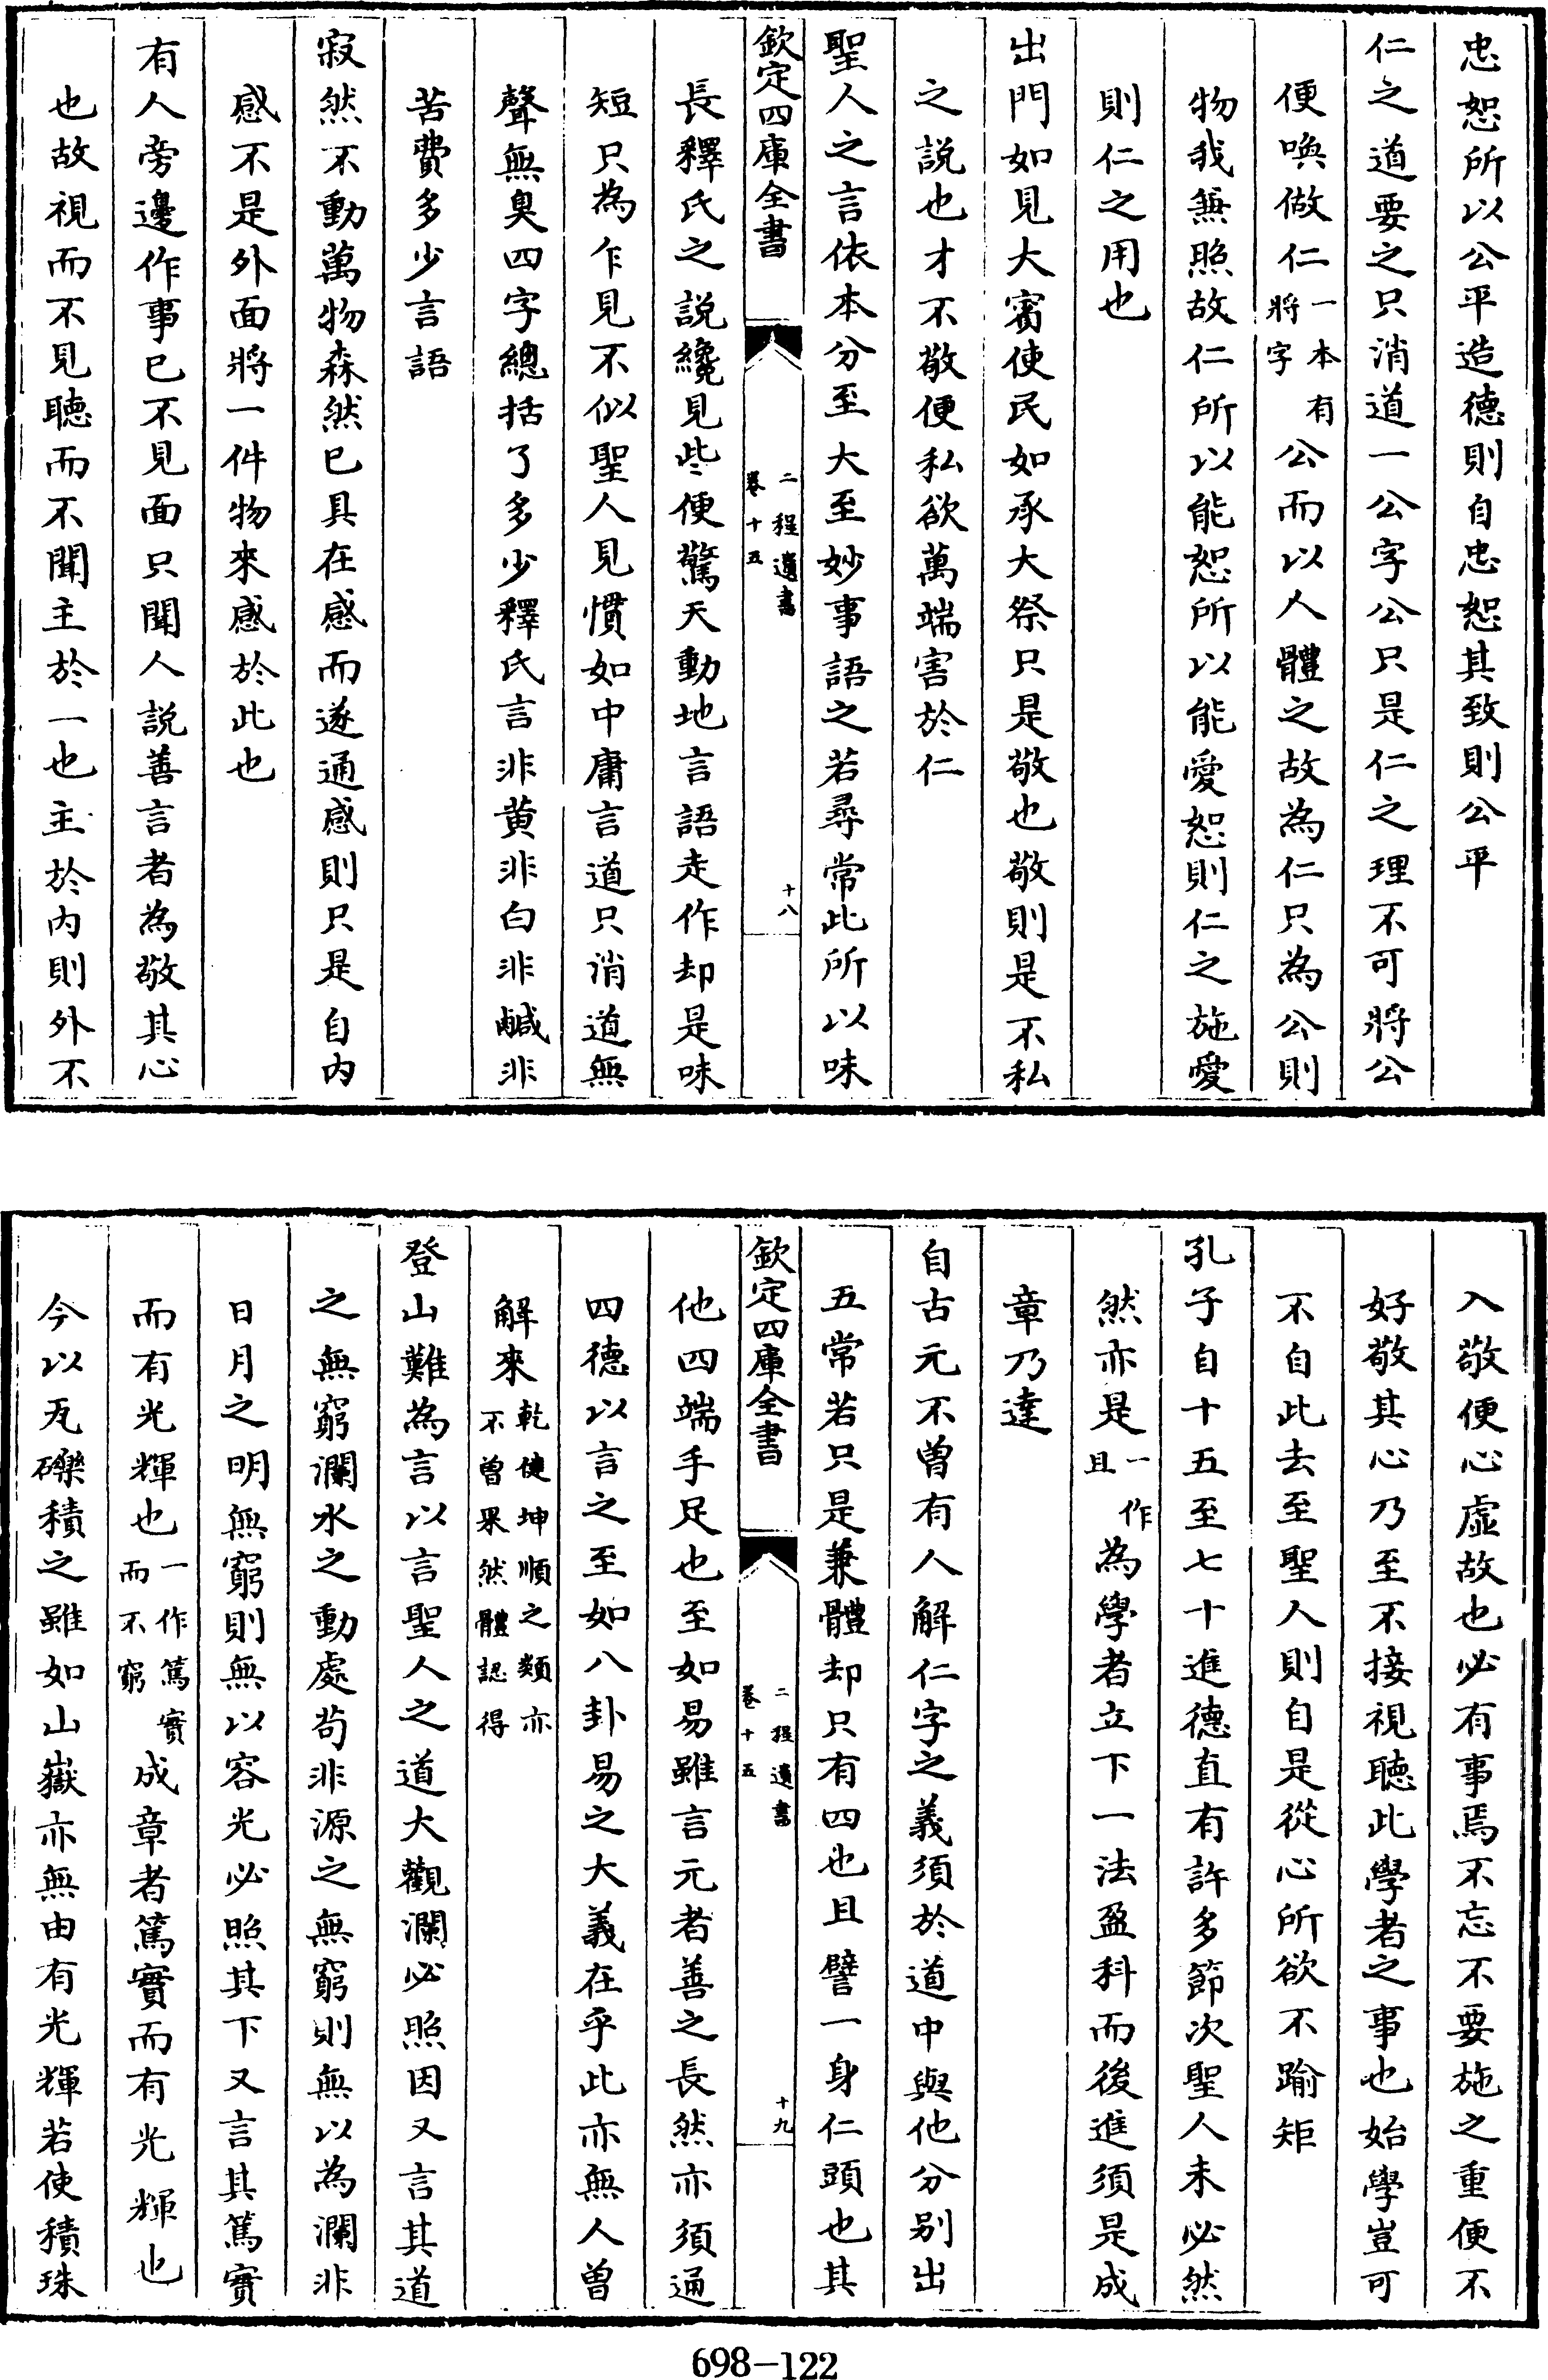 忠恕所以公平造德則自忠恕其致則公平
仁之道要之只消道一公字公只是仁之理不可將公
便喚做仁一本有將字公而以人體之故為仁只為公則
物我兼照故仁所以能恕所以能愛恕則仁之施愛
則仁之用也
出門如見大賓使民如承大祭只是敬也敬則是不私
之說也才不敬便私欲萬端害於仁
聖人之言依本分至大至妙事語之若尋常此所以味
欽定四庫全書
二程遺書
卷十五
十八
長釋氏之說纔見些便驚天動地言語走作却是味
短只為乍見不似聖人見慣如中庸言道只消道無
聲無臭四字總括了多少釋氏言非黃非白非鹹非
苦費多少言語
寂然不動萬物森然已具在感而遂通感則只是自內
感不是外面將一件物來感於此也
有人旁邊作事已不見面只聞人說善言者為敬其心
也故視而不見聽而不聞主於一也主於內則外不
入敬便心虛故也必有事焉不忘不要施之重便不
好敬其心乃至不接視聽此學者之事也始學豈可
不自此去至聖人則自是從心所欲不踰矩
孔子自十五至七十進德直有許多節次聖人未必然
然亦是一作且為學者立下一法盈科而後進須是成
章乃達
自古元不曾有人解仁字之義須於道中與他分別出
五常若只是兼體却只有四也且譬一身仁頭也其
欽定四庫全書
二程遺書
卷十五
十九
他四端手足也至如易雖言元者善之長然亦須通
四德以言之至如八卦易之大義在乎此亦無人曾
解來乾健坤順之類亦不曾果然體認得
登山難為言以言聖人之道大觀瀾必照因又言其道
之無窮瀾水之動處苟非源之無窮則無以為瀾非
日月之明無窮則無以容光必照其下又言其篤實
而有光輝也一作篤實而不窮成章者篤實而有光輝也
今以瓦礫積之雖如山嶽亦無由有光輝若使積珠
698-122